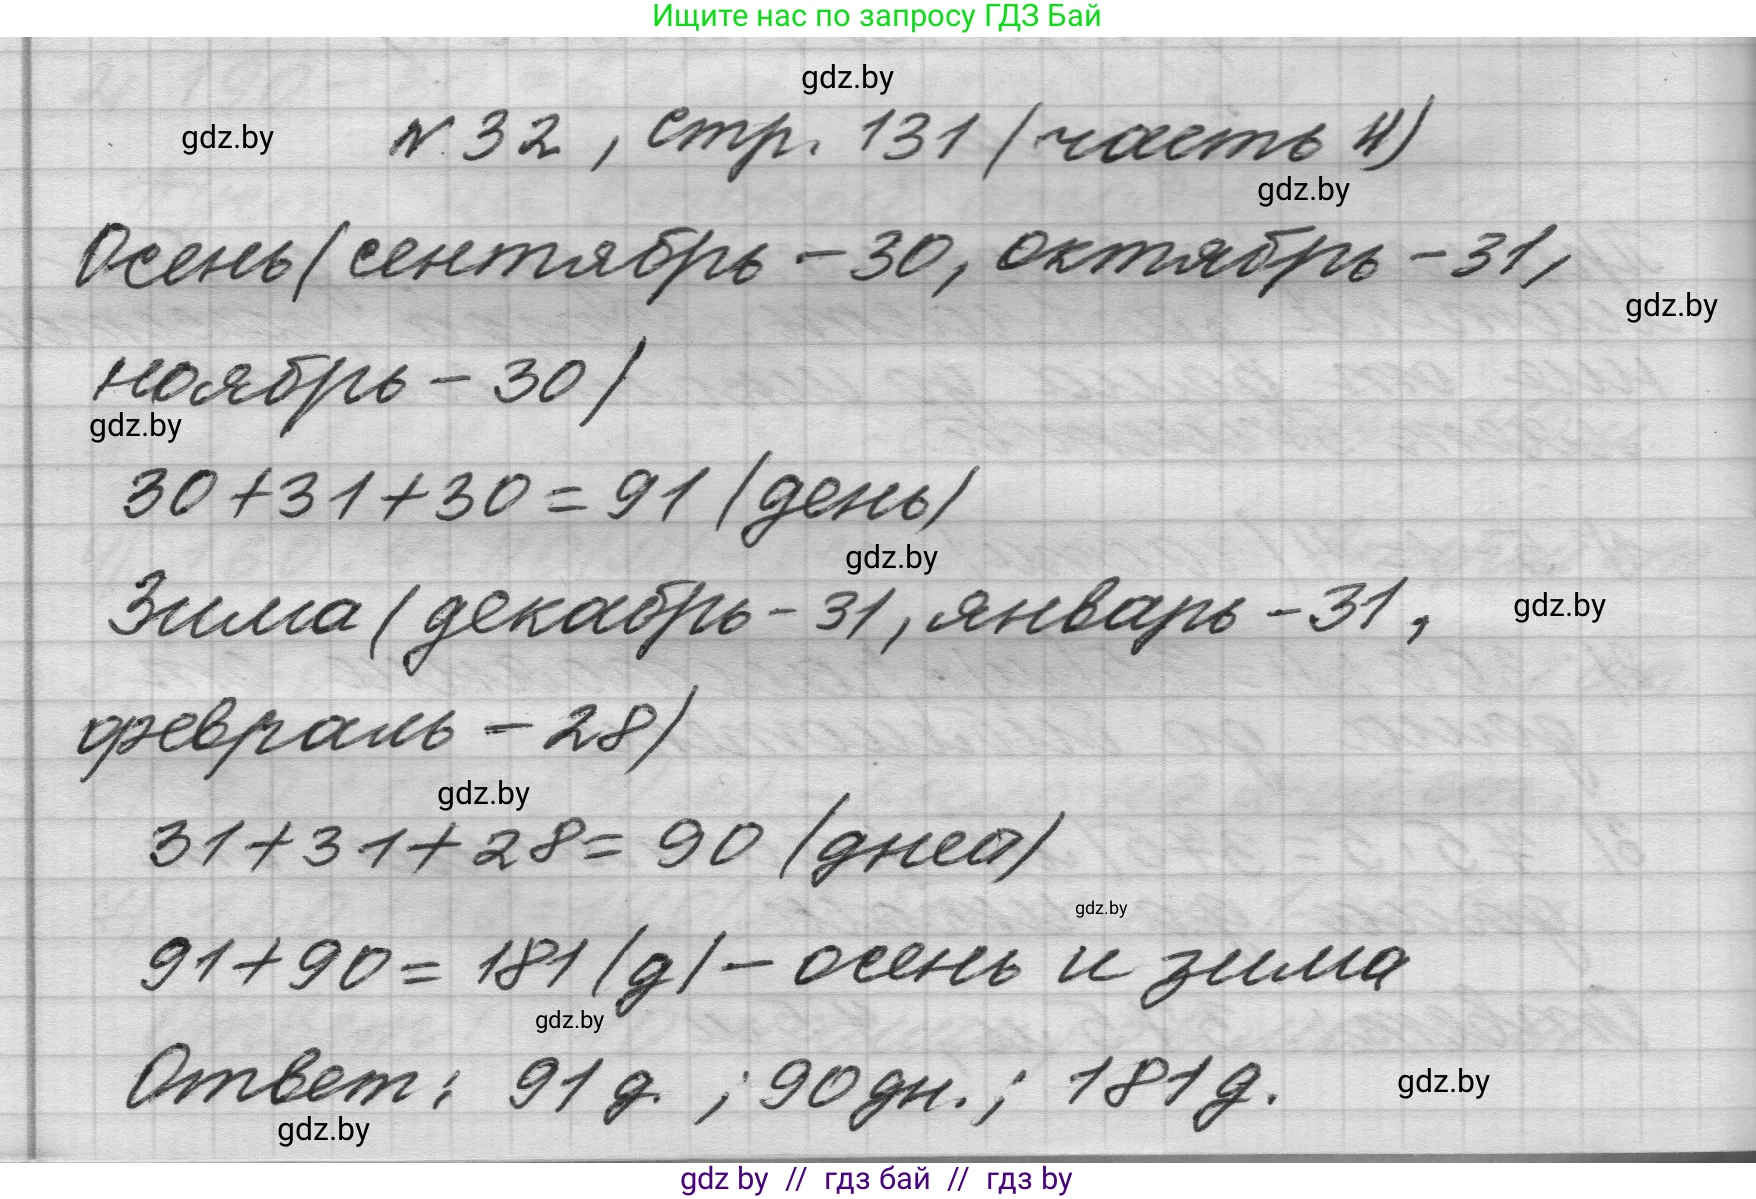 Ищите нас по запросу ГДЗ Бай
gdz.by
gdz.by
N. 32, стр. 131 (часть 4)
gdz.by
Осень (сентябрь - 30, октябрь - 31,
gdz.by
ноябрь - 30)
gdz.by
30 + 31 + 30 = 91 (день)
gdz.by
Зима (декабрь - 31, январь - 31,
gdz.by
февраль - 28)
gdz.by
31 + 31 + 28 = 90 (дней)
gdz.by
91 + 90 = 181 (д) - осень и зима
gdz.by
Ответ: 91 д. ; 90 дн. ; 181 д.
gdz.by
gdz.by
gdz by // гдз бай // гдз by